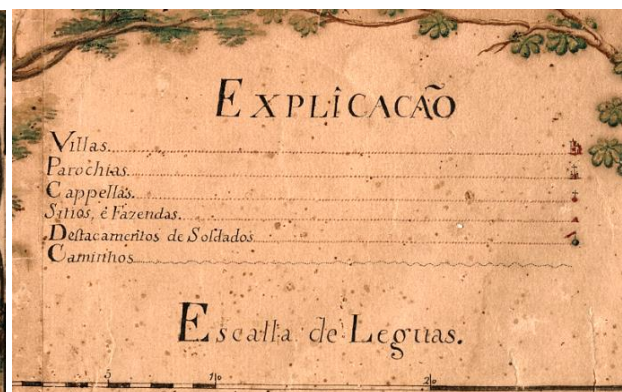 EXPLICACÃO
Villas
Parochias
Cappellas
Sitios, e Fazendas.
Destacamentos de Soldados
Caminhos
Escalla de Leguas.
5 10 20